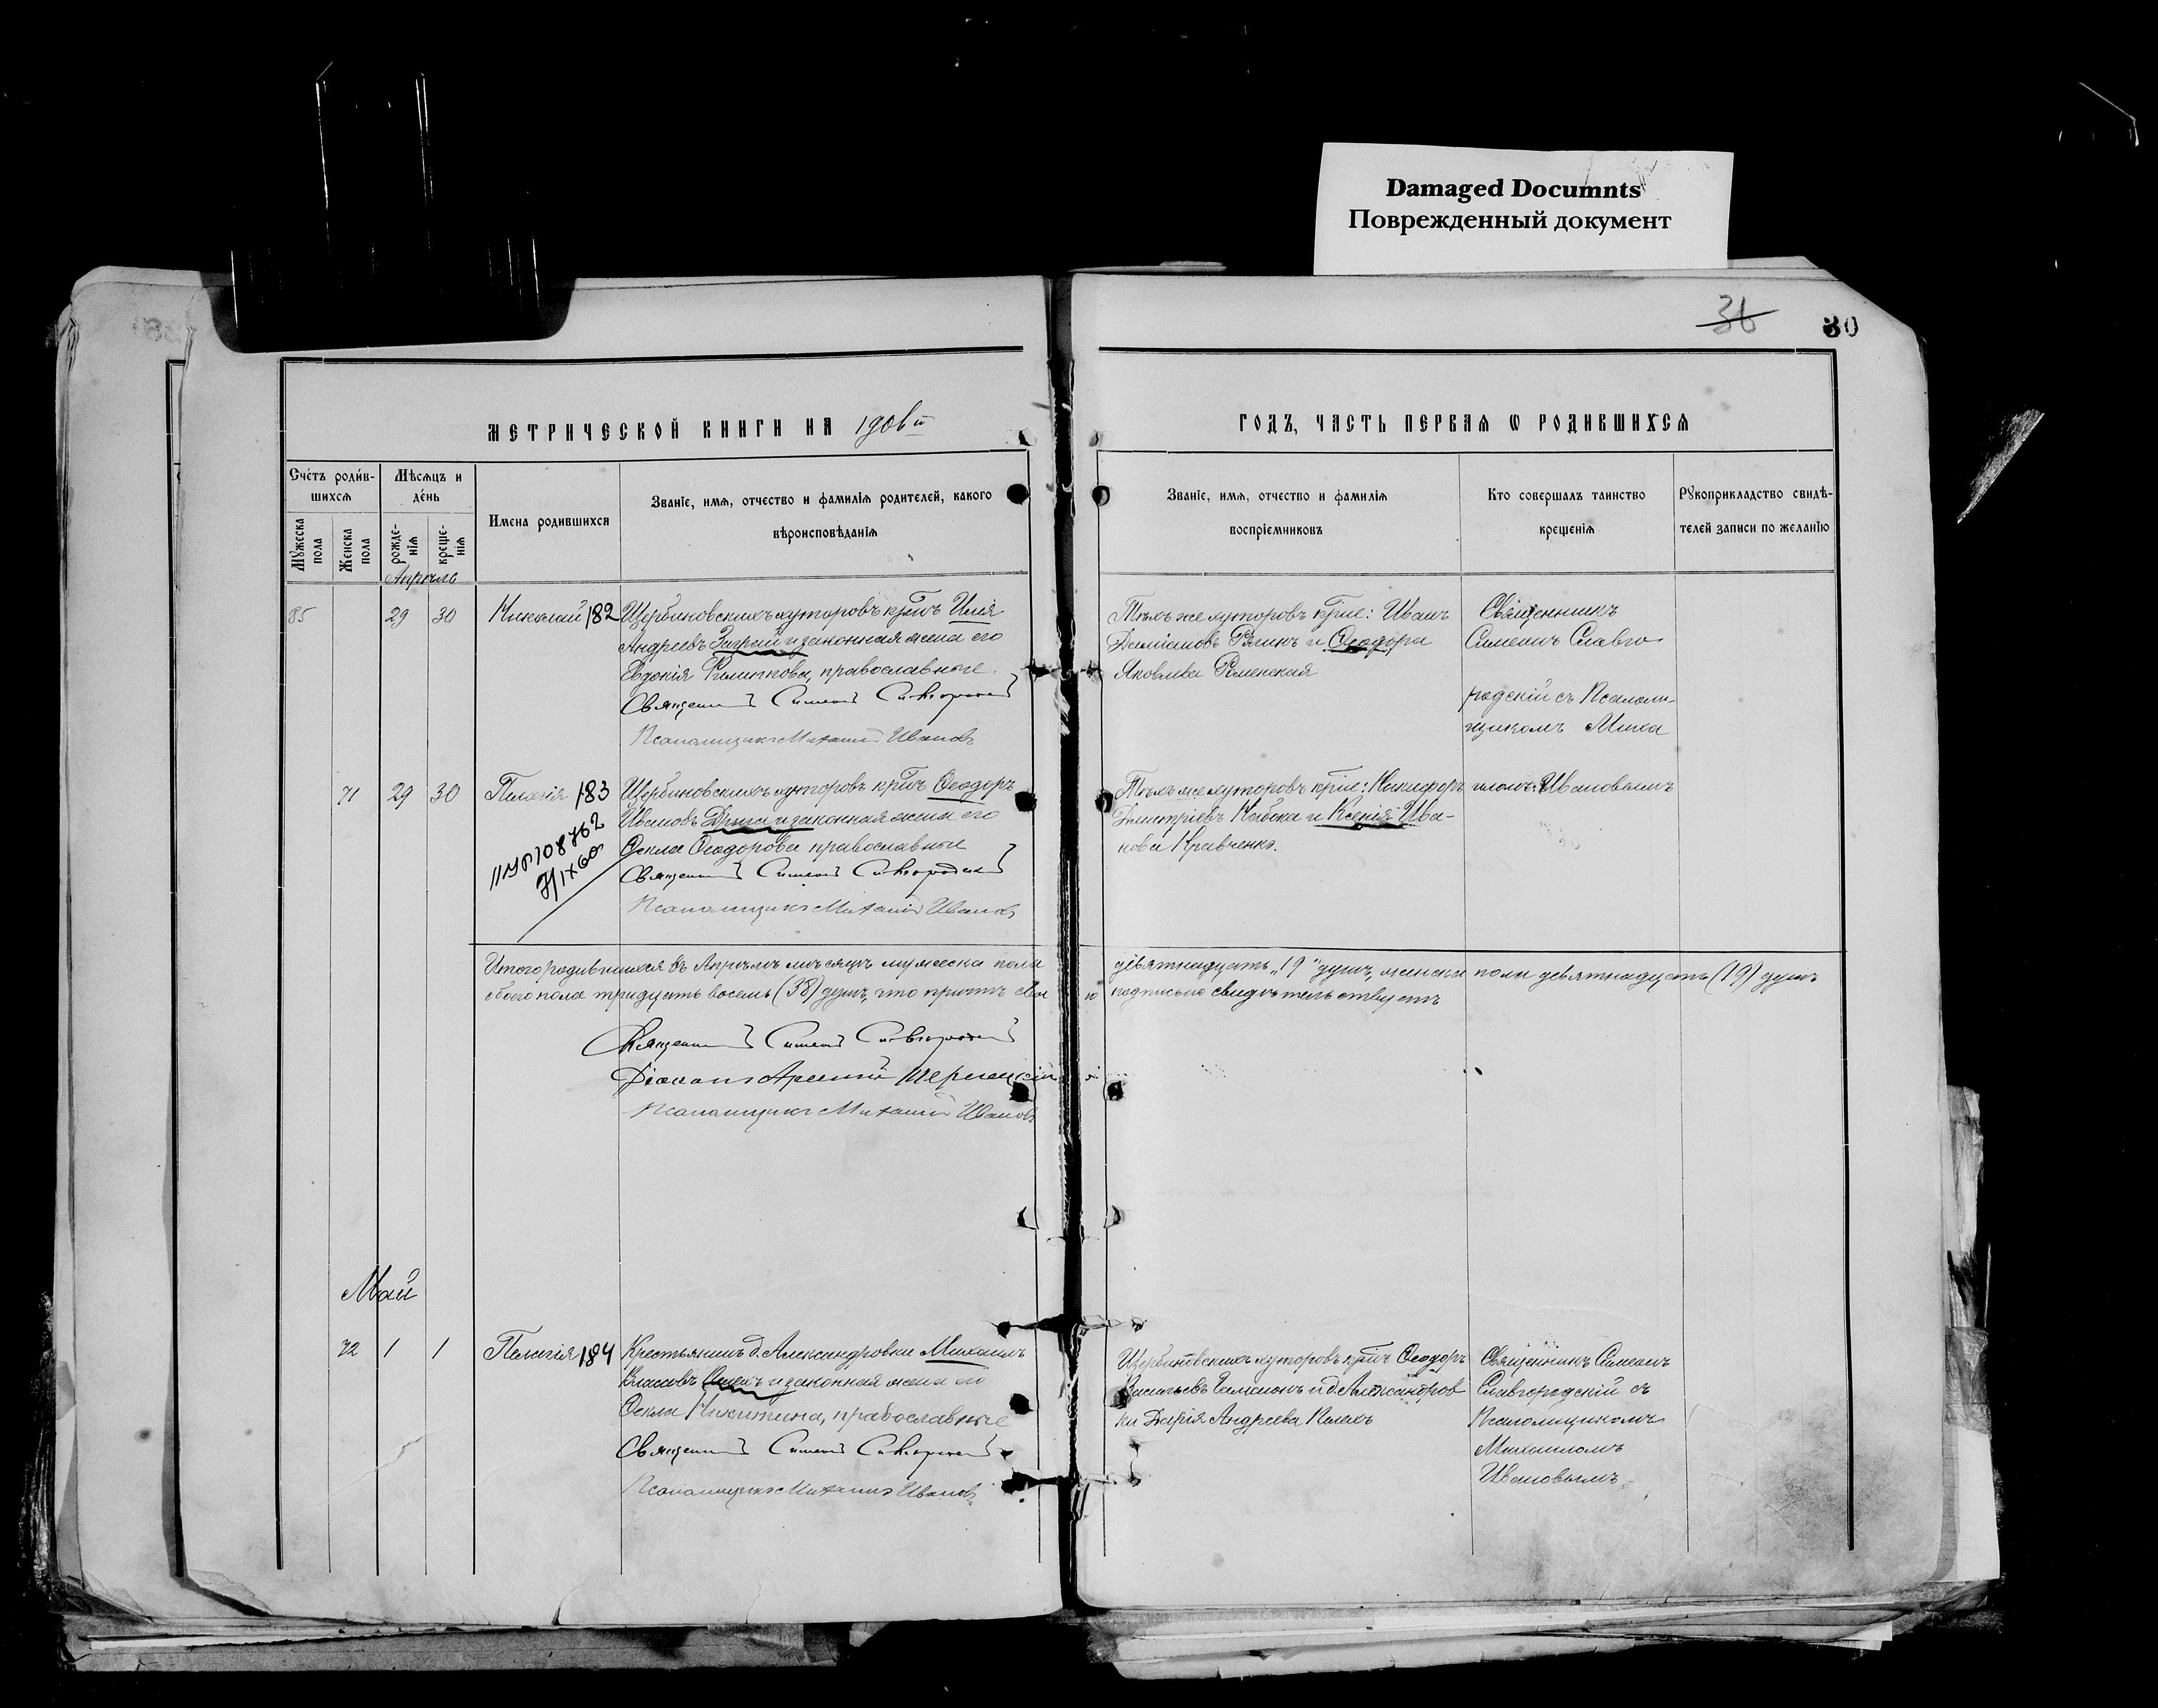 Damaged Documnts
Поврежденный документ
36
30
МЕТРИЧЕСКОЙ КНИГИ НА 1906й
ГОДЪ, ЧАСТЬ ПЕРВАЯ Ѡ РОДИВШИХСЯ
Счетъ родив-
шихся
Мѣсяцъ и
день
Мужеска
пола
Женска
пола
рожде-
нія
креще-
нія
Имена родившихся
Званіе, имя, отчество и фамилія родителей, какого
вѣроисповѣданія
Званіе, имя, отчество и фамилія
воспріемниковъ
Кто совершалъ таинство
крещенія
Рукоприкладство свидѣ-
телей записи по желанію
Апрѣль
85 29 30 Николай 182 Щербиновскихъ хуторовъ кр-нъ Илія
Андреевъ Заграй и законная жена его
Евдокія Филиппова, православные
Священникъ Симеонъ Славгородскій
Псаломщикъ Михаилъ Ивановъ
Тѣхъ же хуторовъ кр-не: Иванъ
Даміановъ и Ѳеодора
Яковлева Роменская
Священникъ
Симеонъ Славго-
родскій съ Псалом-
щикомъ Миха
71 29 30 Пелагія 183 Щербиновскихъ хуторовъ кр-нъ Ѳеодоръ
Ивановъ Дрига и законная жена его
Ѳекла Ѳеодорова православные
Священникъ Симеонъ Славгородскій
Псаломщикъ Михаилъ Ивановъ
108762
Тѣхъ же хуторовъ кр-не: Никифоръ
Димитріевъ и Ксенія Ива-
нова Кравченко.
иломъ Ивановымъ
Итого родившихся въ Апрѣлѣ мѣсяцѣ мужеска пола девятнадцать „19“ душъ, женска пола девятнадцать (19) душъ
обоего пола тридцать восемь (38) душъ, что причтъ своею подписью свидѣтельствуетъ
Священникъ Симеонъ Славгородскій
Діаконъ Арсеній
Псаломщикъ Михаилъ Ивановъ
Май
72 1 1 Пелагія 184 Крестьянинъ д. Александровки Михаилъ
Власовъ и законная жена его
Ѳекла Никитина, православные
Священникъ Симеонъ Славгородскій
Псаломщикъ Михаилъ Ивановъ
Щербиновскихъ хуторовъ кр-нъ Ѳеодоръ
Васильевъ и д. Александров
ки Дарія Андреева
Священникъ Симеонъ
Славгородскій съ
Псаломщикомъ
Михаиломъ
Ивановымъ